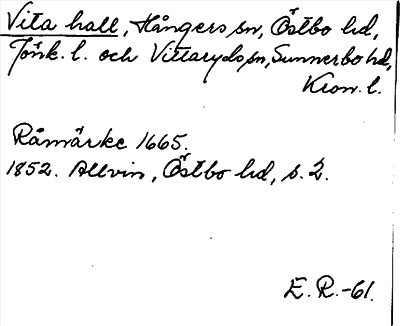 Vita hall, Hångers sn, Östbo hd,
Jönk. l. och Vittaryds sn, Sunnerbo hd,
Kron. l.
Råmärke 1665.
1852. Allvin, Östbo hd, s. 2.
E. R. -61.